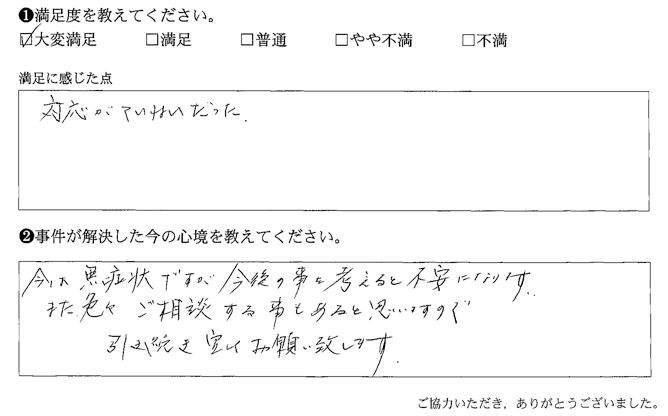 ❶満足度を教えてください。
☑大変満足 □満足 □普通 □やや不満 □不満
満足に感じた点
対応がていねいだった.
❷事件が解決した今の心境を教えてください。
今は無症状ですが今後の事を考えると不安になります.
また色々ご相談する事もあると思いますので
引き続き宜しくお願い致します.
ご協力いただき，ありがとうございました。